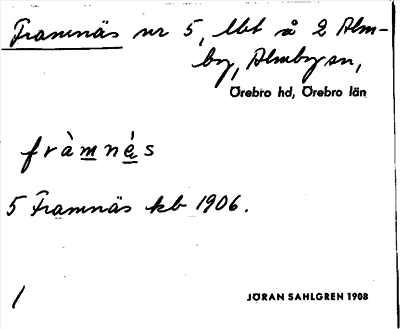 Framnäs nr 5, lbt å 2 Alm-
by, Almby sn,
Örebro hd, Örebro län
fràmnés
5 Framnäs kb 1906.
/
JÖRAN SAHLGREN 1908